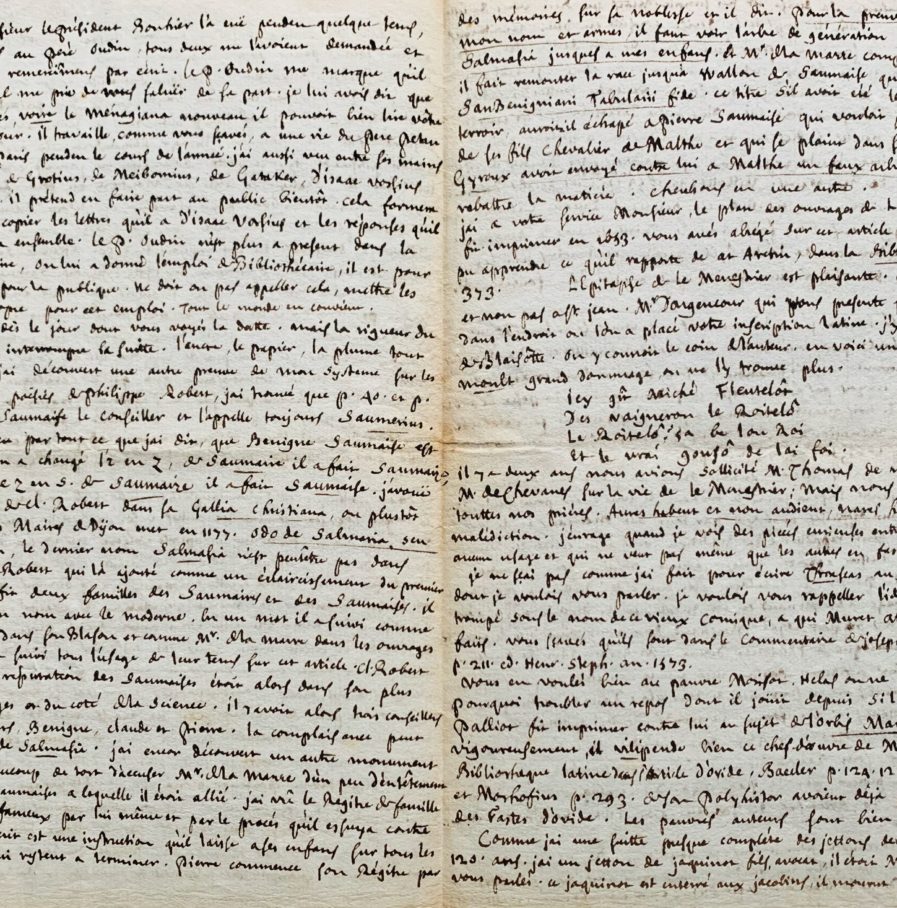 sieur le président Bouhier l'a eüe penden quelque tems,
au pere Oudin, tous deux me l'avoient demandée et
remercîmens par écrit. le P. Oudin me marque qu'il
il me prie de vous saluër de sa part. je lui avois dit que
voire le Ménagiana nouveau il pouvoit bien lire vôtre
jour. il travaille, comme vous sçavés, a une vie du pere Petau
dans penden le cours de l'année. j'ai aussi veu entre ses mains
de Grotius, de Meibomius, de Gataker, d'isaac vossius
il prétend en faire part au public bientôt. cela formera
copier les lettres qu'il a d'isaac Vossius et les réponses qu'il
ensemble. le P. Oudin n'est plus a present dans la
on lui a donné l'emploi de Bibliothécaire, il est pour
pour la publique. ne doit on pas appeller cela, mettre les
propre pour cet emploi. Tout le monde en convient.
dès le jour dont vous voyés la datte. mais la rigueur du
interrompre la suitte. l'encre, le papier, la plume tout
j'ai découvert une autre preuve de mon systeme sur les
poësies de philippe Robert, j'ai trouvé que p. 40. et p.
Saumaise le conseiller et l'appelle toujours Saumerius.
par tout ce que j'ai dit, que Benigne Saumaise est
a changé l'r en z, de Saumaire il a fait Saumaize
le z en s. de Saumaize il a fait Saumaise. j'avouë
de cl. Robert dans sa Gallia Christiana, ou plustôt
Maires de Dijon met en 1177. Odo de Salmaria, seu
le dernier nom Salmasia n'est peutêtre pas dans
Robert qui l'a ajouté comme un éclaircissement du premier
fit deux familles des Saumaires et des Saumaises. il
nom avec le moderne. En un mot il a suivi comme
dans son Blason et comme Mr. de la marre dans les ouvrages
suivi tous l'usage de leur tems sur cet article. cl. Robert
réputation des Saumaises étoit alors dans son plus
du coté de la science. il y avoit alors trois conseillers
Benigne, claude et Pierre. la complaisance peut
de Salmasia. j'ai encor découvert un autre monument
beaucoup de tort d'accuser Mr. de la Marre d'un peu d'entêtement
Saumaises a laquelle il étoit allié. j'ai vû le Régitre de famille
fameux par lui même et par le procés qu'il essuya contre
est une instruction qu'il laisse a ses enfans sur tous les
qui restent a terminer. Pierre commence son Régitre par
des mémoires, sur sa noblesse et il dit. Pour la preuve
mon nom et armes, il faut voir l'arbre de génération
Salmasie jusques a mes enfans. et Mr. de la marre
il fait remonter la race jusqu'a Wallon de Saumaise
San Benigniani Tabularii fide. ce titre s'il avoit été
terroir, auroit-il échapé a Pierre Saumaise qui vouloit
de ses fils Chevalier de Malthe et qui se plaint dans
Gyroux avoit envoyé contre lui a Malthe un faux
rabattre la matiere. cherchons en une autre.
j'ai a votre service Monsieur, le plan des ouvrages de
fit imprimer en 1653. vous avés abégé sur cet article
pu apprendre ce qu'il rapporte de dans la
373. L'Epitaphe de le Menestrier est plaisante.
et non pas a st jean. Mr. Dargencour qui presente
dans l'endroit ou l'on a placé votre inscription latine.
de Blaisôtte. on y connoit le coin de l'auteur. en voici
moult grand dommage on ne l'y trouve plus.
Icy gît Miché Fleutelôt
Des vaigneron le Roitelô
Le Roitelô? sa be lou Roi
Et le vrai gousô de lai foi.
il y a deux ans nous avions sollicité M. Thomas de
M. de Chevanes sur la vie de le Menestrier; mais nous
touttes nos prieres. Aures habent et non audient, nares
malédiction. j'enrage quand je vois des pieces curieuses
aucun usage et qui ne veut pas même que les autres en
je ne sçai pas comme j'ai fait pour écrire Thraseas au
dont je voulois vous parler. je voulois vous rappeller
trompé sous le nom de ce vieux Comique, a qui Muret
faits. vous sçavés qu'ils sont dans le Commentaire de joseph
p. 211. ed. Henr. Steph. an. 1573.
Vous en voulés bien au pauvre Moisot. Helas on ne
pourquoi troubler un repos dont il jouït depuis si
Palliot fit imprimer contre lui au sujet de l'orbis
vigoureusement, il vilipende bien ce chef-d'œuvre de
Bibliothéque latine dans l'article d'ovide. Baecler p. 129. 12
et Morhofius p. 293. de son Polyhistor avoient déjà
des Fastes d'ovide. Les pauvres auteurs sont bien
Comme j'ai une suitte presque complete des jettons de
120. ans. j'ai un jetton de jaquinot fils, avocat, il étoit
vous parlés. ce jaquinot est enterré aux jacobins, il mourut